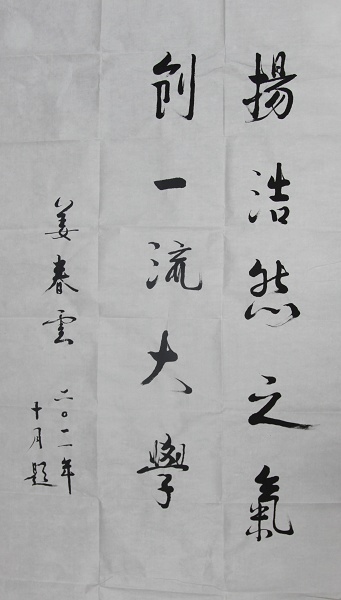 揚浩然之氣
創一流大學
姜春雲
二〇一一年
十月題